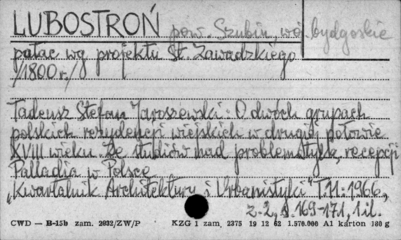 LUBOSTROŃ pow. Szubin, woj. bydgoskie
pałac wg projektu St. Zawadzkiego
/1800 r./
Tadeusz Stefan Jaroszewski: O dwóch grupach
polskich rezydencji wiejskich w drugiej połowie
XVIII wieku. Ze studiów nad problematyką recepcji
Palladia w Polsce
„Kwartalnik Architektury i Urbanistyki" T.11: 1966,
z. 2, s. 169-171, 1 il.
CWD — B-15b zam. 2032/ZW/P KZG 1 zam. 2375 19 12 62 1.570.000 A1 karton 180 g